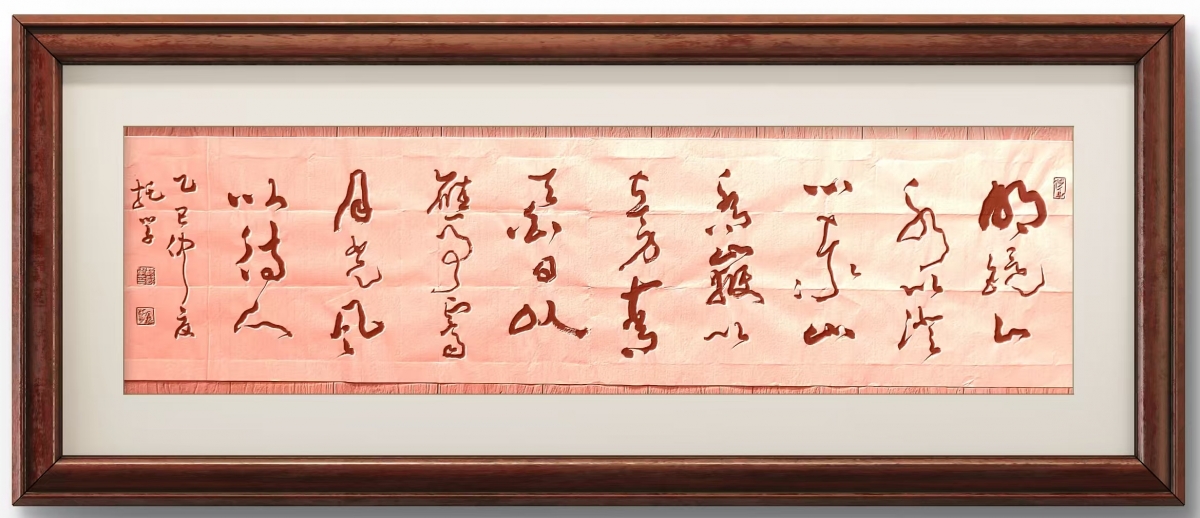 明镜止
水以澄
心泰山
乔嶽以
立身青
天白日以
應事霽
月光风
以待人
乙巳仲夏